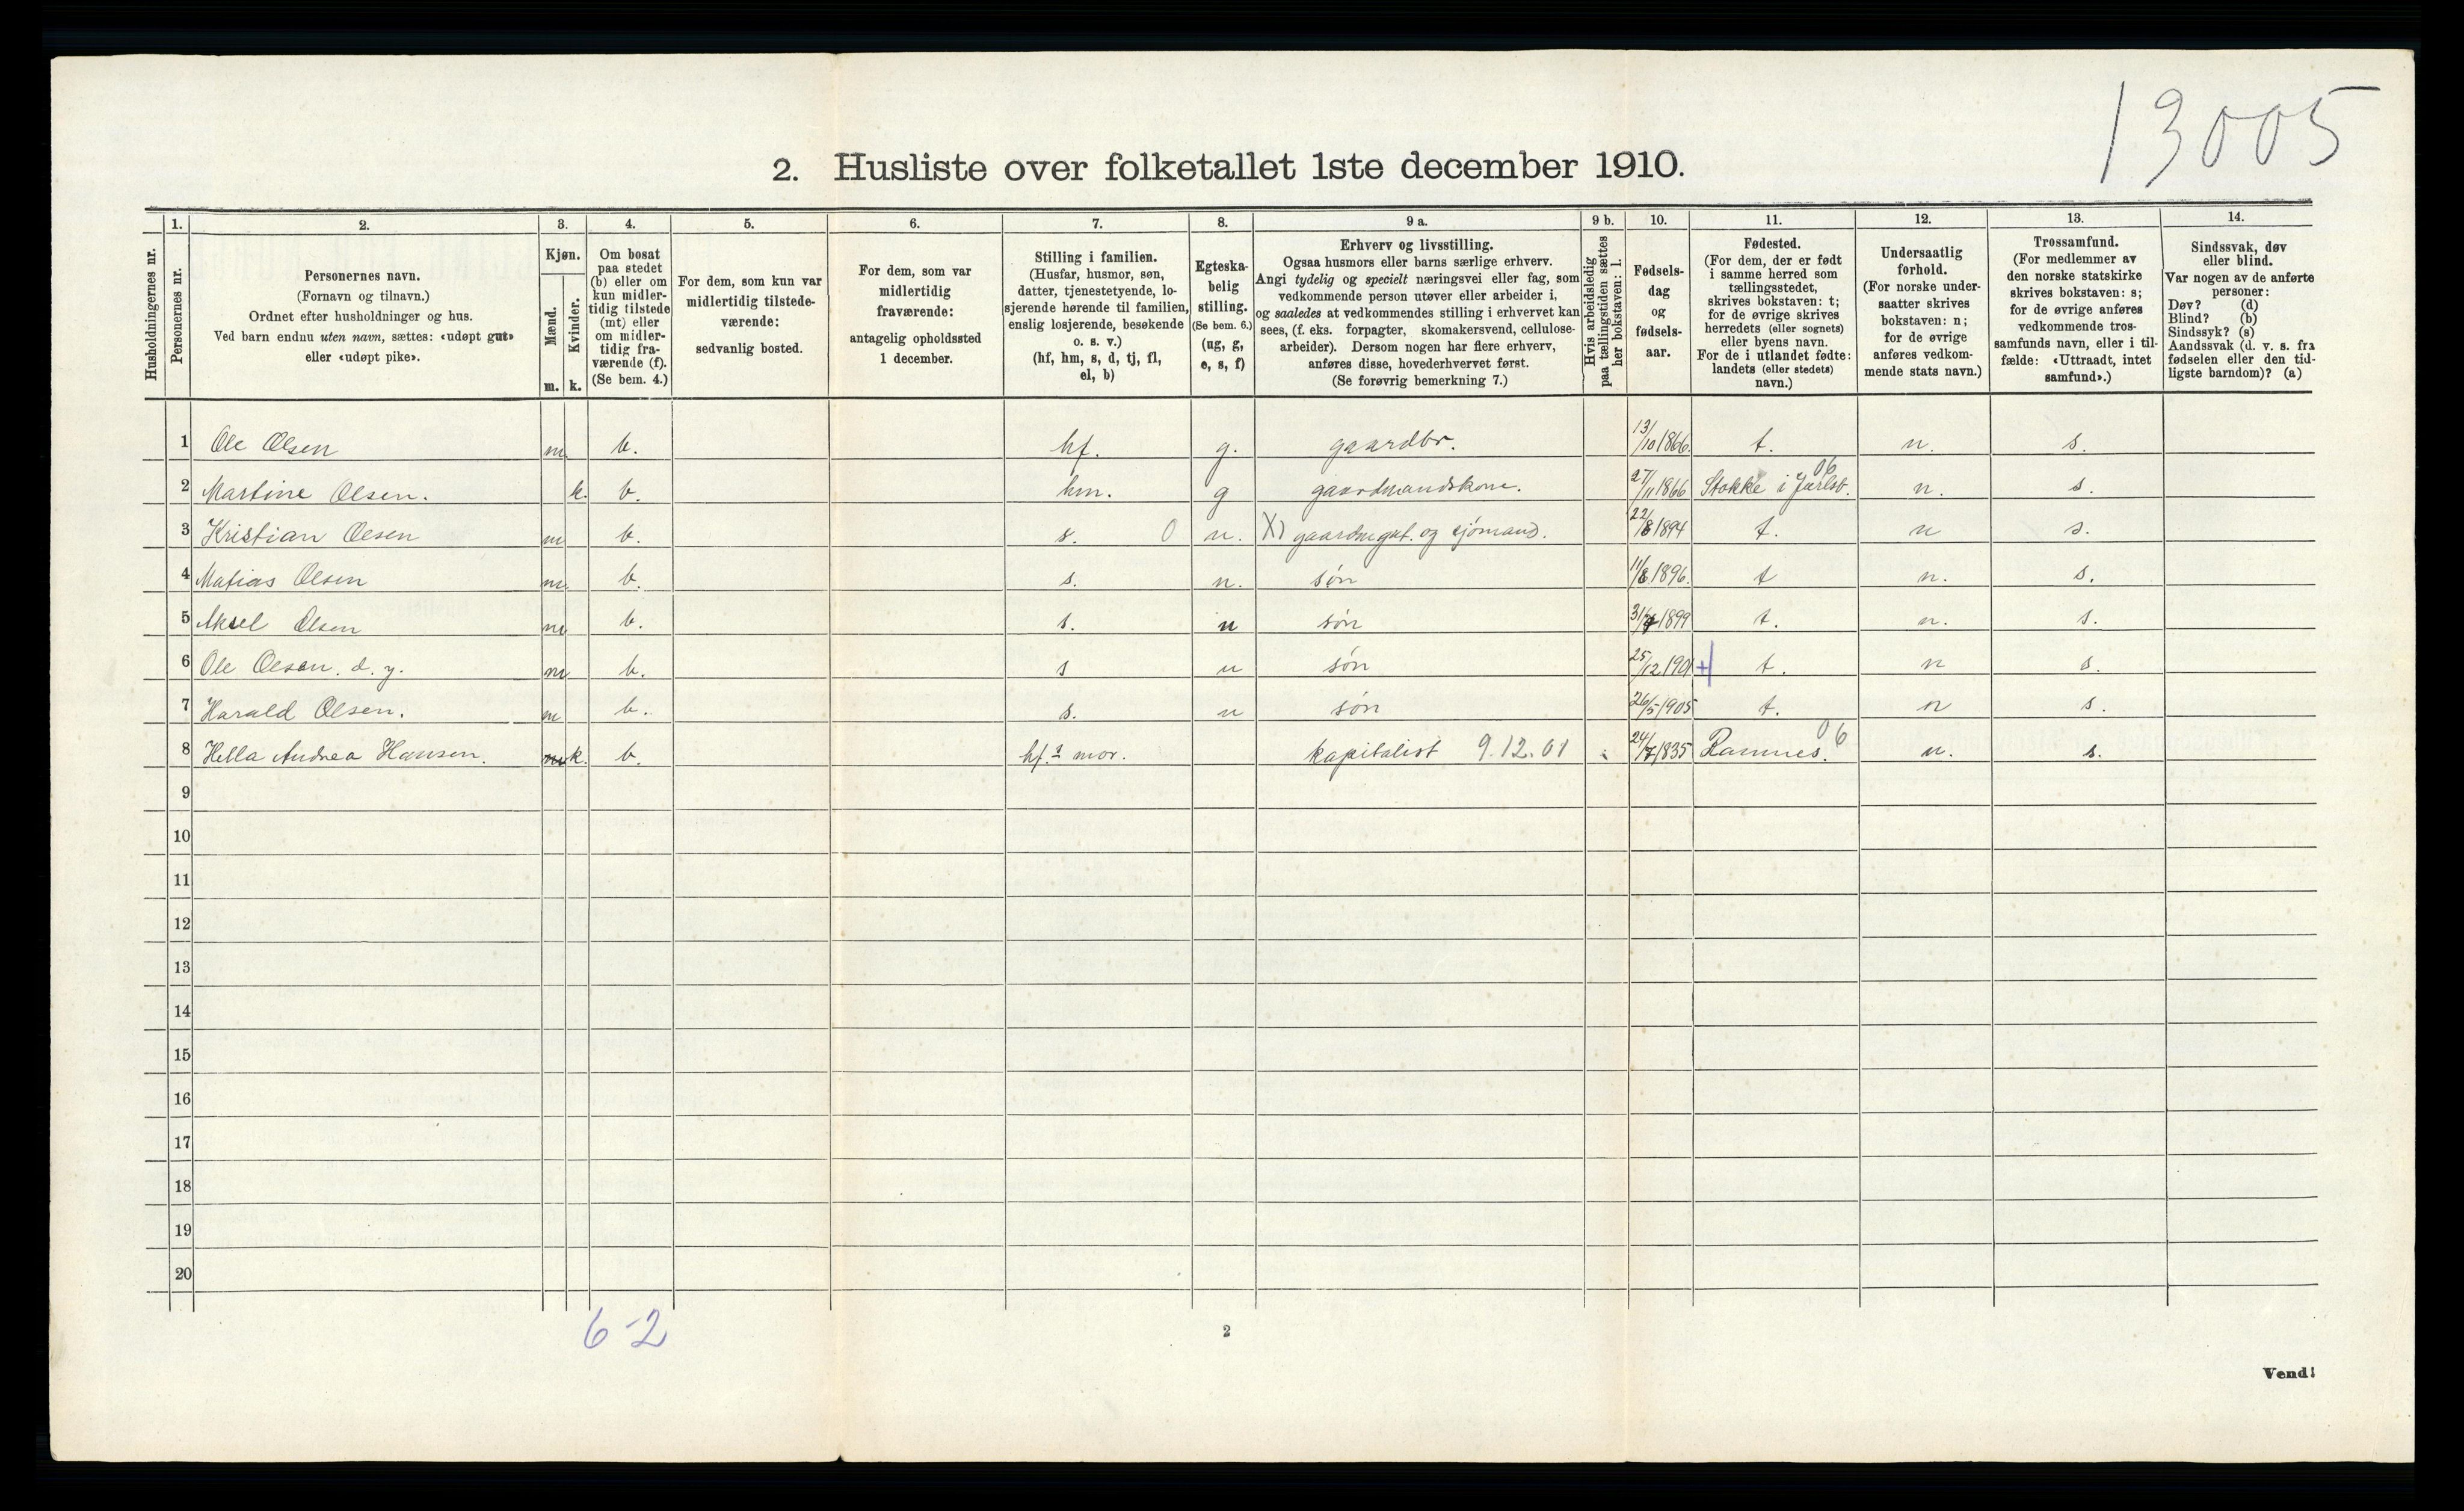 13005
2. Husliste over folketallet 1ste december 1910.
Husholdningernes nr.
1.
Personernes nr.
2.
Personernes navn.
(Fornavn og tilnavn.)
Ordnet efter husholdninger og hus.
Ved barn endnu uten navn, sættes: «udøpt gut»
eller «udøpt pike».
3.
Kjøn.
Mænd.
Kvinder.
m. k.
4.
Om bosat
paa stedet
(b) eller om
kun midler-
tidig tilstede
(mt) eller
om midler-
tidig fra-
værende (f).
(Se bem. 4.)
5.
For dem, som kun var
midlertidig tilstede-
værende:
sedvanlig bosted.
6.
For dem, som var
midlertidig
fraværende:
antagelig opholdssted
1 december.
7.
Stilling i familien.
(Husfar, husmor, søn,
datter, tjenestetyende, lo-
sjerende hørende til familien,
enslig losjerende, besøkende
o. s. v.)
(hf, hm, s, d, tj, fl,
el, b)
8.
Egteska-
belig
stilling.
(Se bem. 6.)
(ug, g,
e, s, f)
9 a.
Erhverv og livsstilling.
Ogsaa husmors eller barns særlige erhverv.
Angi tydelig og specielt næringsvei eller fag, som
vedkommende person utøver eller arbeider i,
og saaledes at vedkommendes stilling i erhvervet kan
sees, (f. eks. forpagter, skomakersvend, cellulose-
arbeider). Dersom nogen har flere erhverv,
anføres disse, hovederhvervet først.
(Se forøvrig bemerkning 7.)
9 b.
Hvis arbeidsledig
paa tællingstiden sættes
her bokstaven: l.
10.
Fødsels-
dag
og
fødsels-
aar.
11.
Fødested.
(For dem, der er født
i samme herred som
tællingsstedet,
skrives bokstaven: t;
for de øvrige skrives
herredets (eller sognets)
eller byens navn.
For de i utlandet fødte:
landets (eller stedets)
navn.)
12.
Undersaatlig
forhold.
(For norske under-
saatter skrives
bokstaven: n;
for de øvrige
anføres vedkom-
mende stats navn.)
13.
Trossamfund.
(For medlemmer av
den norske statskirke
skrives bokstaven: s;
for de øvrige anføres
vedkommende tros-
samfunds navn, eller i til-
fælde: «Uttraadt, intet
samfund».)
14.
Sindssvak, døv
eller blind.
Var nogen av de anførte
personer:
Døv? (d)
Blind? (b)
Sindssyk? (s)
Aandssvak (d. v. s. fra
fødselen eller den tid-
ligste barndom)? (a)
1 Ole Olsen m b. hf. g. gaardbr. 13/10 1866. t. n. s.
2 Martine Olsen. k. b. hm. g gaardmandskone. 27/11 1866 Stokke i Jarlsb. 06 n. s.
3 Kristian Olsen m b. s. 0 u. X) gaardsgut. og sjømand. 22/8 1894 t. n s.
4 Matias Olsen m b. s. u. søn 11/8 1896. t n. s.
5 Aksel Olsen m b. s. u søn 31/7 1899 t. n. s.
6 Ole Olsen. d. y. m b. s u søn 25/12 1901 + t. n s.
7 Harald Olsen. m b. s. u søn 26/5 1905 t. n s.
8 Hella Andrea Hansen. m k. b. hf.s mor. kapitalist 9.12.01 24/7 1835 Ramnes. 06 n. s.
9
10
11
12
13
14
15
16
17
18
19
20
6-2
2
Vend!